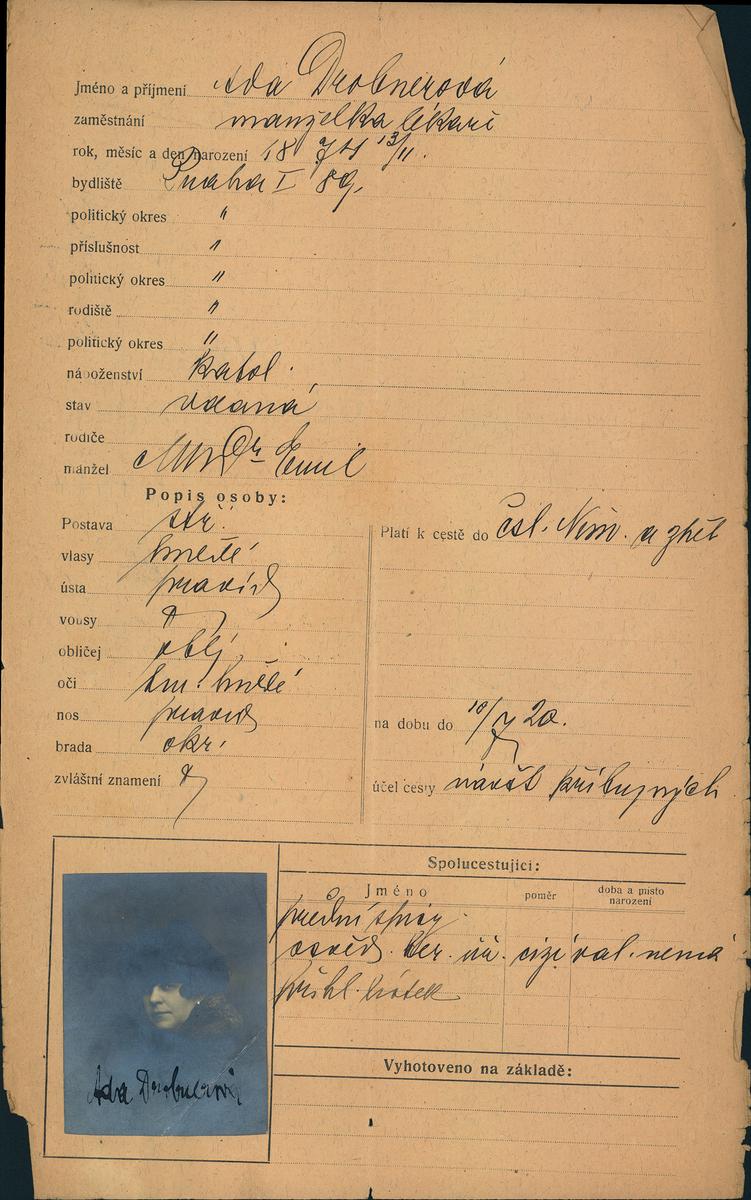 Jméno a příjmení Ada Drobnerová
zaměstnání manželka lékaře
rok, měsíc a den narození 18 13/11.
bydliště Praha I 89.
politický okres "
příslušnost "
politický okres "
rodiště "
politický okres "
náboženství katol.
stav vdaná
rodiče
manžel MUDr Emil
Popis osoby:
Postava stř.
vlasy hnědé
ústa pravid
vousy
obličej oblý
oči tm. hnědé
nos pravid
brada okr.
zvláštní znamení
Platí k cestě do čsl. Něm. a zpět
na dobu do 10/7 20.
účel cesty návšt příbuzných
Spolucestující:
Jméno poměr doba a místo narození
osvěd. ber. úř. cizí val. nemá
přihl. lístek
Vyhotoveno na základě:
Ada Drobnerová